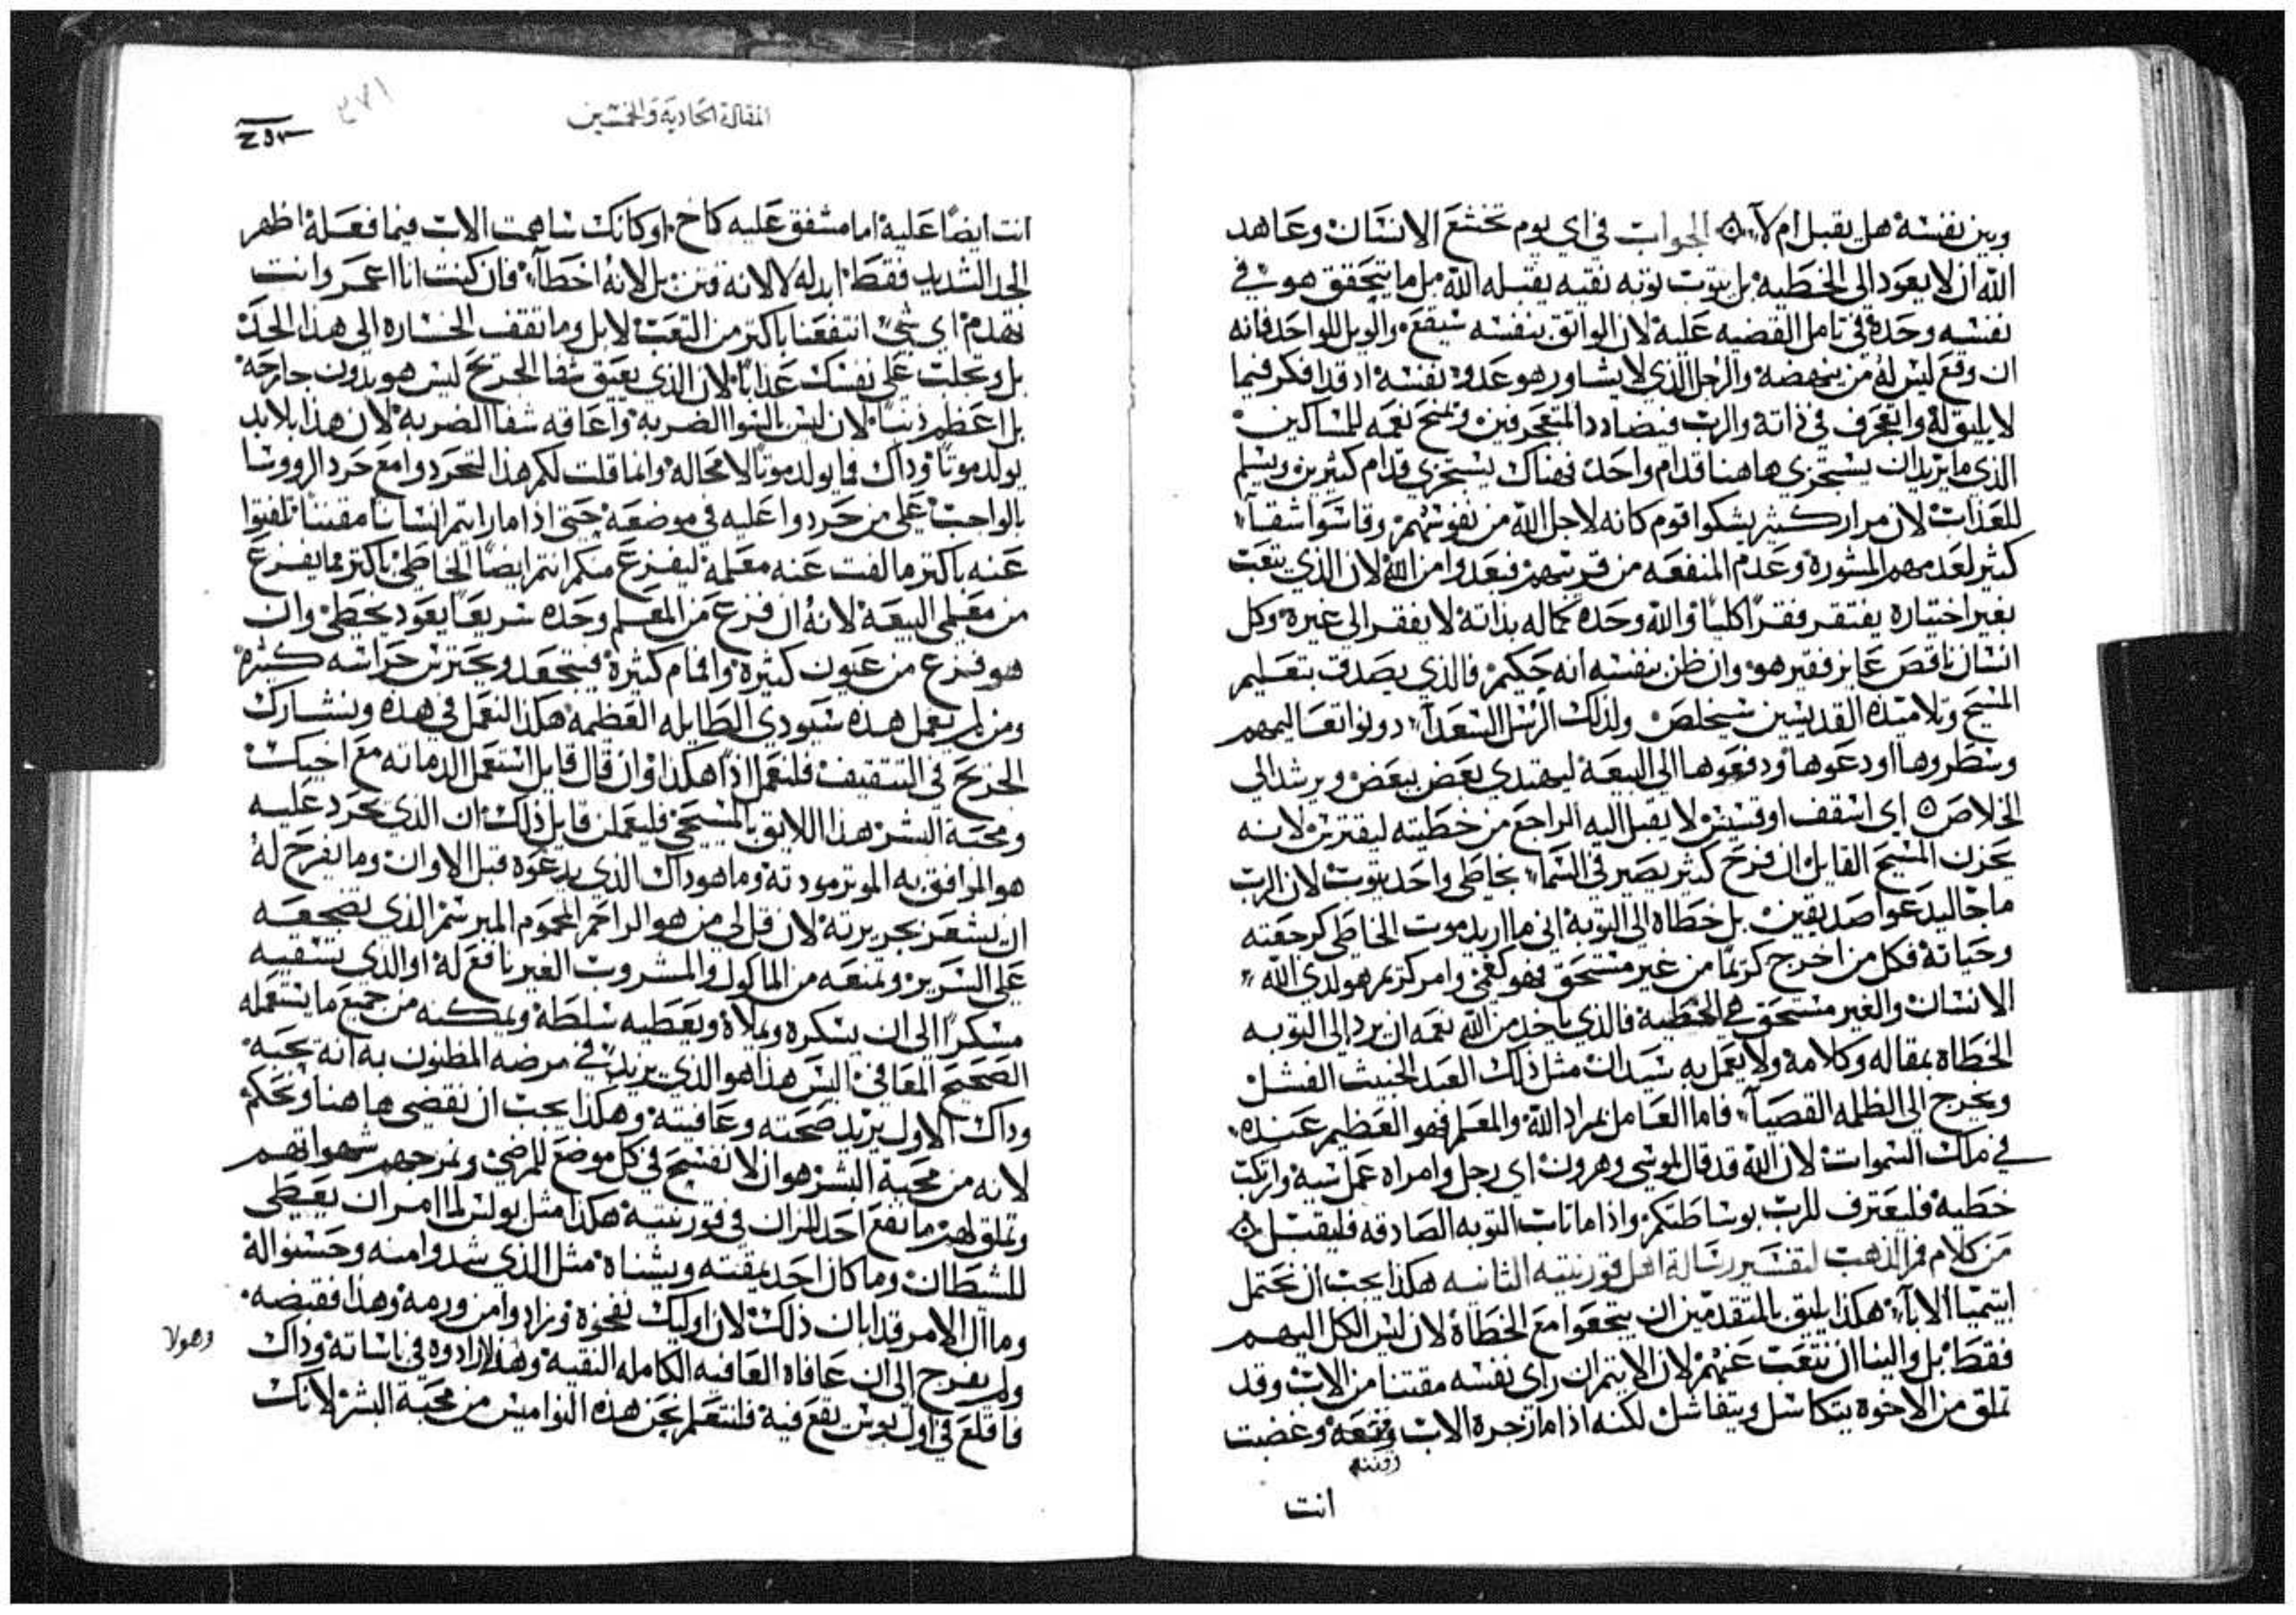 وبين نفسه هل يقبل ام لا ۞ الجواب في اي يوم تخشع الانسان وعاهد
الله ان لا يعود الى الخطيه بل يتوب توبه نقيه يقبله الله بل ما يتحقق هو في
نفسه وحده في تامل القضيه عليه لان الواثق بنفسه سيقع والويل للواحد فانه
ان وقع ليس له من ينهضه والرجل الذي لا يشاور هو عدو نفسه اد قد افكر فيما
لا يليق له وانعجرف في ذاته والرب فيضادد المتعجرفين ويمنح نعمه للمساكين
الذي ما يريد ان يستخزي هاهنا قدام واحد فهناك يستخزي قدام كثيرين ويسلم
للعذاب لان مرار كثير يشكوا قوم كانه لاجل الله من نفوسهم وقاسوا شقآء
كثير لعدمهم المشورة وعدم المنفعه من قريبهم فبعدوا من الله لان الذي يتعب
بغير اختياره يفتقر فقرًا كليًا والله وحده كماله بذاته لا يفقر الى غيره وكل
انسان ناقص عايز فقير هو وان ظن بنفسه انه حكيم فالذي يصدق بتعليم
المسيح وتلاميذه القديسين سيخلص ولذلك الرسل السعدآء دونوا تعاليمهم
وسطروها اودعوها ودفعوها الى البيعه ليهتدي بعض ببعض ويرشد الى
الخلاص ۞ اي اسقف او قسيس لا يقبل اليه الراجع من خطيته ليقترس لانه
يحزن المسيح القايل ان فرح كثير يصير في السماء بخاطي واحد يتوب لان الرب
ما جا ليدعوا صديقين بل خطاه الى التوبه اني ما اريد موت الخاطي كرجعته
وحياته فكل من اخرج كريمًا من غير مستحق فهو كفمي وامر كريم هو لدى الله
الانسان والغير مستحق هي الخطيه فالذي ياخد من الله نعمه ان يرد الى التوبه
الخطاه بمقاله وكلامه ولا يعمل به سيدان مثل ذلك العبد الخبيث الفشل
ويخرج الى الظلمه القصيآء فاما العامل بمراد الله والمعلم فهو العظيم عنده
في ملك السموات لان الله قد قال لموسى وهرون اي رجل وامراه عمل شيه وارتكب
خطيه فليعترف للرب بوساطتكم واذا ما تاب التوبه الصادقه فليقبل ۞
من كلام فم الذهب لتفسير رسالة اهل قورنتيه الثانيه هكذا يجب ان نحتمل
ايتميا الابآء هكذا يليق بالمتقدمين ان يتحعوا مع الخطاة لان ليس الكل اليهم
فقط بل والينا ان نتعب عنهم لان الايتم ان راى نفسه مقتنا من الاب وقد
تملق من الاخوه يتكاسل ويتفاشل لكنه اذا ما زجره الاب وغضب
انت
المقالة الحاديه والخمسين
انت ايضًا عليه اما مشفق عليه كاخ او كانك ساهمت الاب فيما فعله اظهر
الجد الشديد فقط ابد له لا لانه فتن بل لانه اخطآء فان كنت انا اعمر وانت
تهدم اي شي انتفعنا باكتر من التعب لا بل وما تقف الخساره الى هذا الحد
بل وتجلب على نفسك عذابًا لان الذي يعيق شفا الجريح ليس هو بدون جارحه
بل اعظم دنبًا لان ليس بالسوا الضربه واعاقه شفا الضربه لان هذا بلا بد
يولد موتًا وداك فما يولد موتًا لا محاله وانما قلت لكم هذا لتحردوا مع حرد الرووسا
بالواجب على من حردوا عليه في موضعه حتى اذا ما رايتم انسانًا مقتنا تلفتوا
عنه باكتر ما لفت عنه معلمه ليفزع منكم انتم ايضًا الخاطي باكتر مما يفزع
من معلمي البيعه لانه ان فزع من المعلم وحده سريعًا يعود يخطي وان
هو فزع من عيون كثيره وافمام كثيرة فيتحفد ويحترس حراسه كثيره
ومن لم يعمل هذه سيودي الطايله العظيمه هكذا النعمل في هذه ونشارك
الجريح في التتقيف فلنعمل اذًا هكذا وان قال قايل استعمل الدماته مع اخيك
ومحبه البشر هذا اللايق بالمسيحي فليعملن قايل ذلك ان الذي يحرد عليه
هو المرافق به الموتر مودته وما هو داك الذي يدعوه قبل الاوان وما يفرح له
ان يشعر بجريرته لان قل لي من هو الراحم المحموم المبرسم الذي يضجعه
على السرير ويمنعه من الماكول والمشروب الغير نافع له او الذي يسقيه
مسكرًا الى ان يسكره ويملاه ويعطيه سلطه ويمكنه من جميع ما يستعمله
الصحيح المعافى اليس هذا هو الذي يريد في مرضه المظنون به انه يحبه
وداك الاول يريد صحته وعافيته وهكذا يجب ان نقضي هاهنا ونحكم
لانه من محبه البشر هو ان لا نفسح في كل موضع للمرضى ونمرجهم شهواتهم
وتملق لهم ما نفع احد للزان في قورنتيه هكذا مثل بولس لما امر ان يعطى
للشطان وما كان احد يمقته ويشناه مثل الذي شدوا منه وحسنوا له
وما ال الامر قد ابان ذلك لان اوليك نفخوه وزادوا من ورمه وهذا فقبضه
ولم يفرج الى ان عافاه العافيه الكامله النقيه وهولا زادوه في باسانه وداك
وهولا
فاقلع في اول بوس يقع فيه فلنتعلم نحن هذه النواميس من محبة البشر لانك